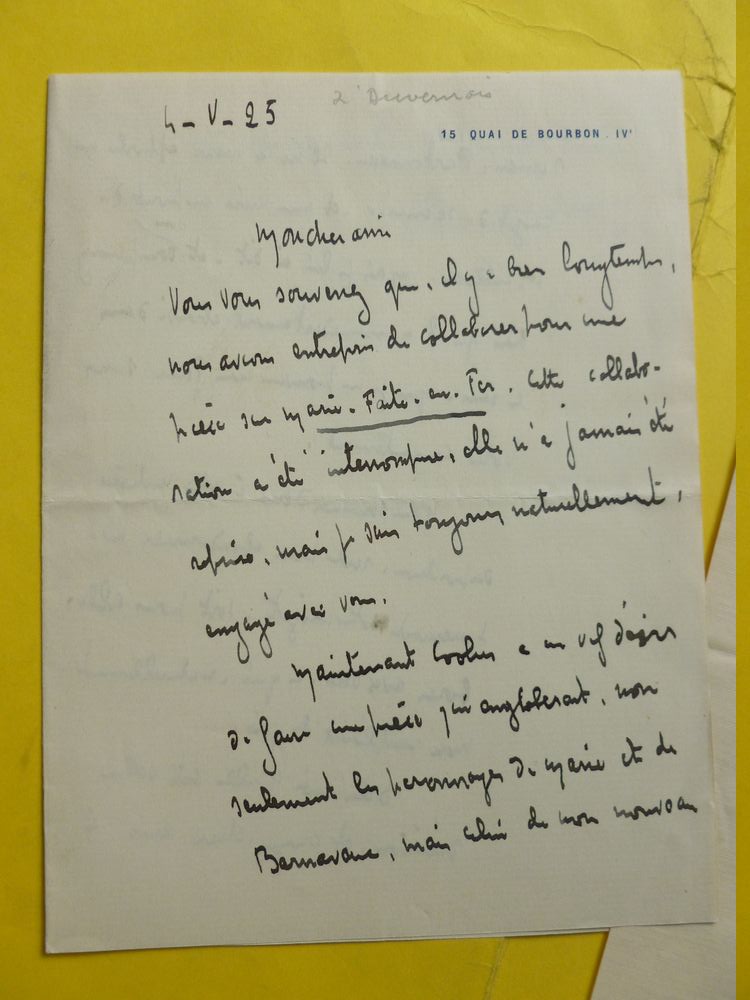 4-V-25
Duvernois
15 QUAI DE BOURBON . IVᵉ
Mon cher ami
Vous vous souvenez que, il y a bien longtemps,
nous avons entrepris de collaborer pour une
pièce sur Marie-Faite-en-Fer. Cette collabo-
ration a été interrompue, elle n'a jamais été
reprise, mais je suis toujours naturellement,
engagé avec vous.
Maintenant Coolus a un vif désir
de faire une pièce qui engloberait, non
seulement les personnages de Marie et de
Barnavaux, mais celui de mon nouveau